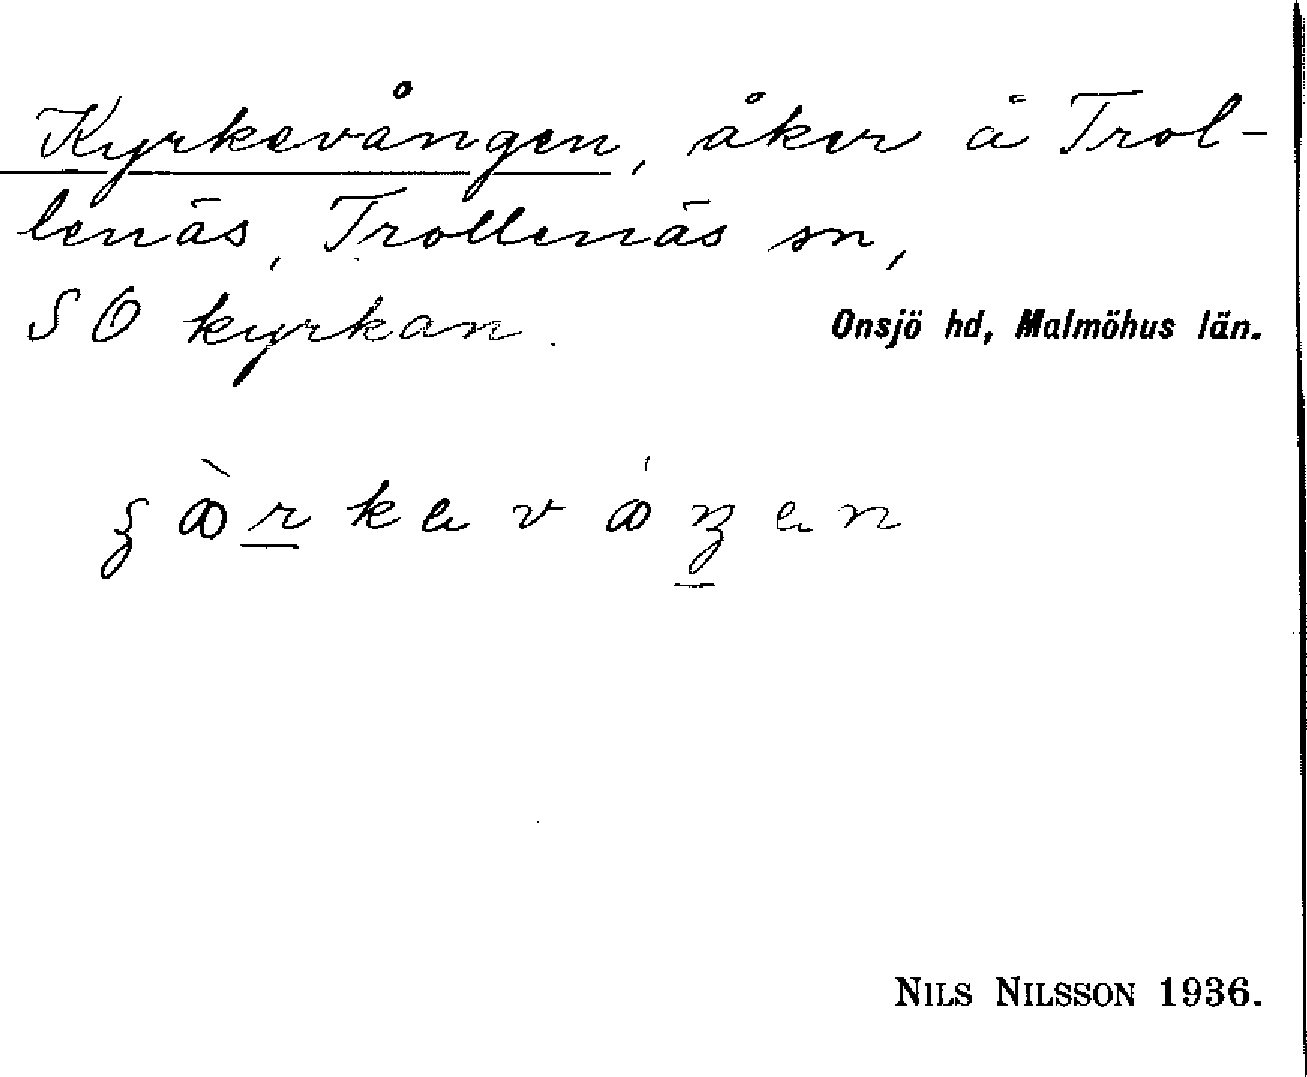 Kyrkevången, åker å Trol-
lenäs, Trollenäs sn,
SO kyrkan.
Onsjö hd, Malmöhus län.
NILS NILSSON 1936.